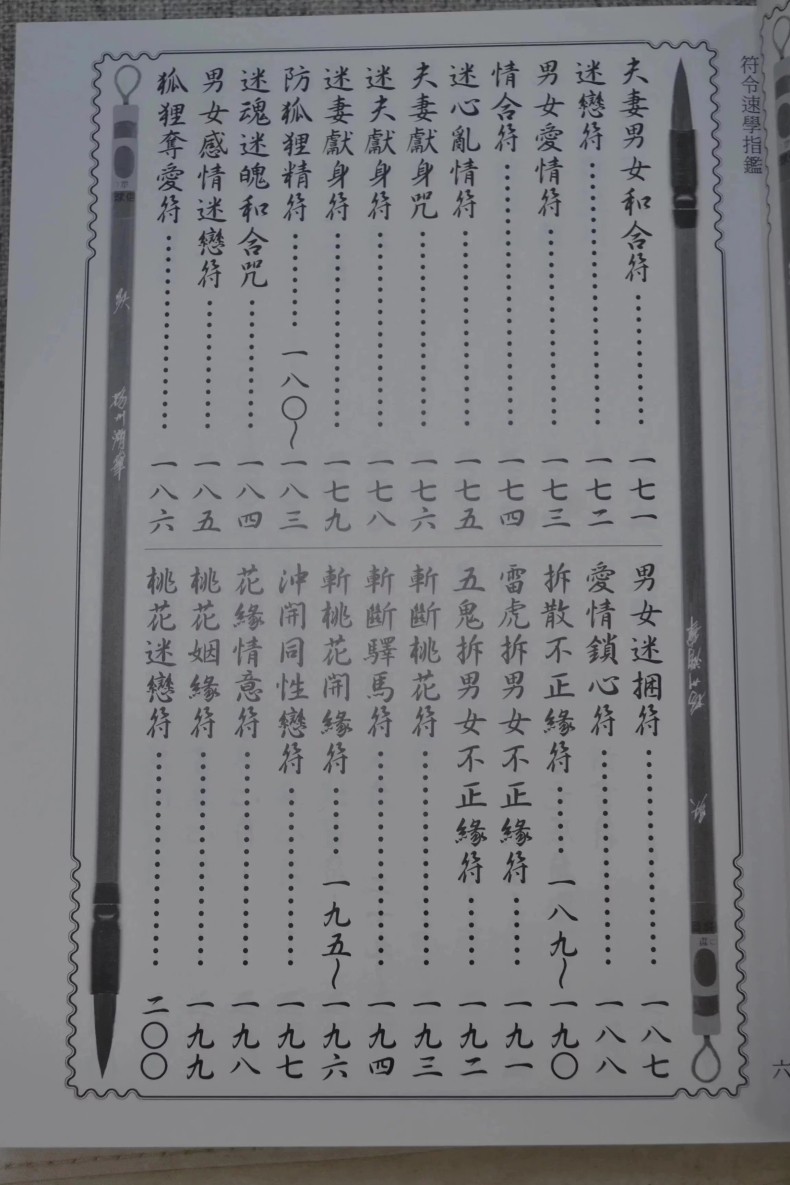 符令速學指鑑
夫妻男女和合符……………一七一
迷戀符……………一七二
男女愛情符……………一七三
情合符……………一七四
迷心亂情符……………一七五
夫妻獻身咒……………一七六
迷夫獻身符……………一七八
迷妻獻身符……………一七九
防狐狸精符……………一八〇~一八三
迷魂迷魄和合咒……………一八四
男女感情迷戀符……………一八五
狐狸奪愛符……………一八六
男女迷捆符……………一八七
愛情鎖心符……………一八八
拆散不正緣符……………一八九~一九〇
雷虎拆男女不正緣符……………一九一
五鬼拆男女不正緣符……………一九二
斬斷桃花符……………一九三
斬斷驛馬符……………一九四
斬桃花開緣符……………一九五~一九六
沖開同性戀符……………一九七
花緣情意符……………一九八
桃花姻緣符……………一九九
桃花迷戀符……………二〇〇
六